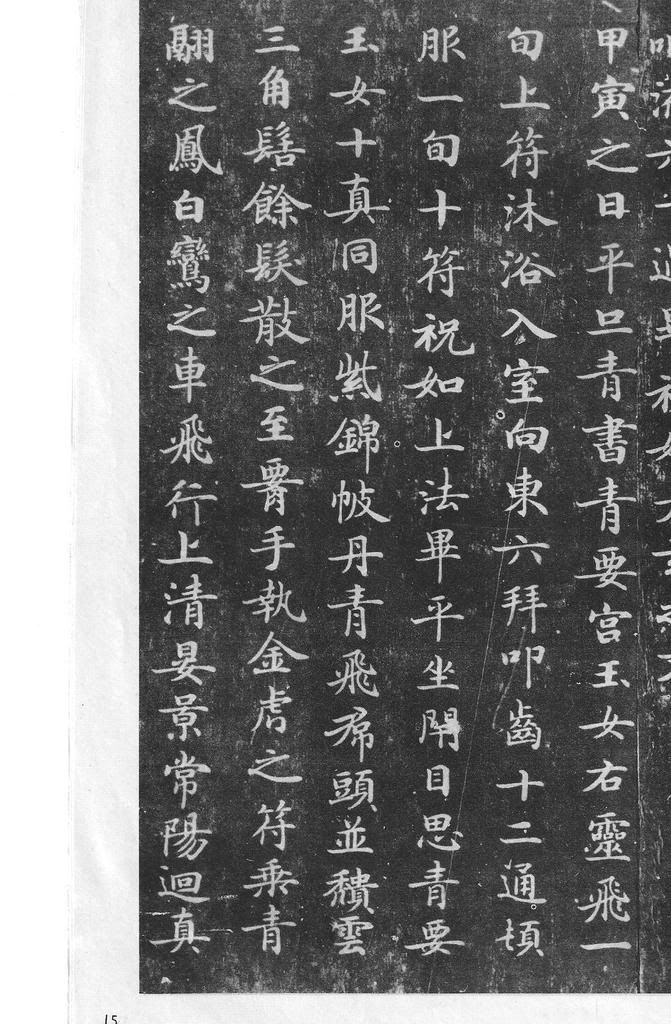 甲寅之日平旦青書青要宮玉女右靈飛一
旬上符沐浴入室向東六拜叩齒十二通頓
服一旬十符祝如上法畢平坐閇目思青要
玉女十真同服紫錦帔丹青飛帬頭並頽雲
三角髻餘髮散之至䙅手執金虎之符乘青
翮之鳳白鸞之車飛行上清晏景常陽迴真
15